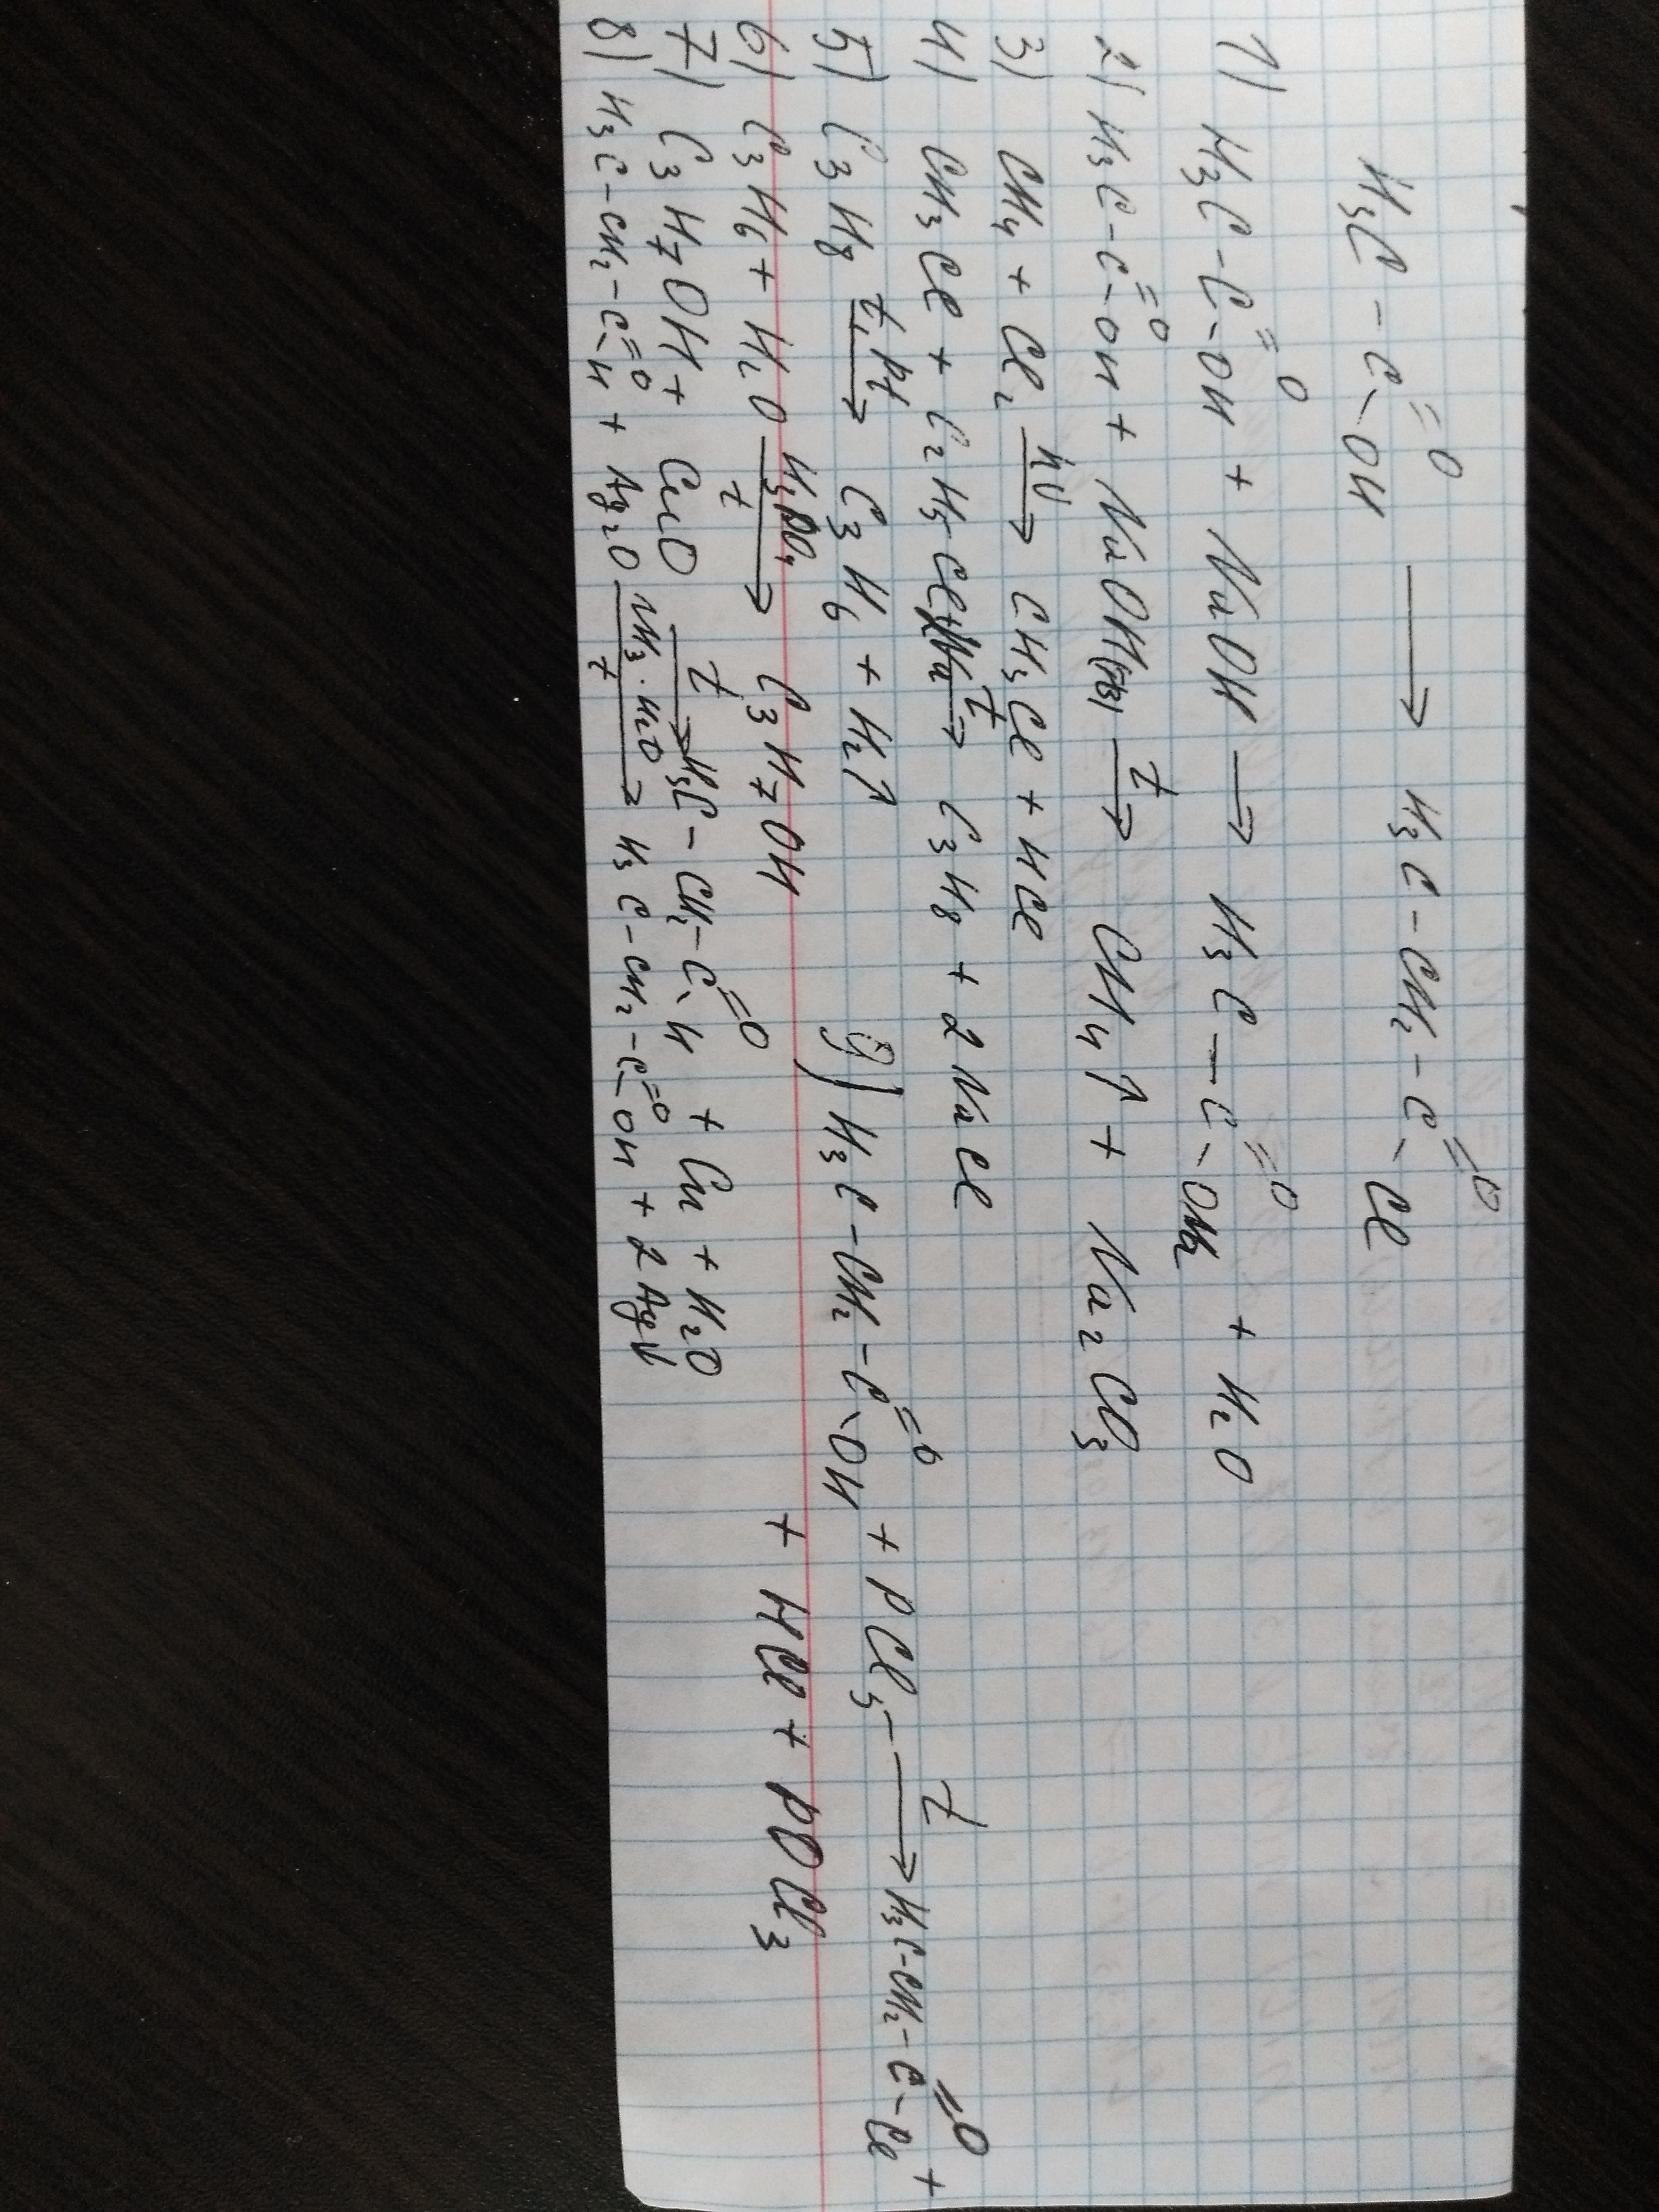 H₃C-C(=O)-OH ⟶ H₃C-CH₂-C(=O)-Cl
1) H₃C-C(=O)-OH + NaOH → H₃C-C(=O)-ONa + H₂O
2) H₃C-C(=O)-OH + NaOH(тв) →(t) CH₄↑ + Na₂CO₃
3) CH₄ + Cl₂ →(hν) CH₃Cl + HCl
4) CH₃Cl + C₂H₅Cl + 2Na →(t) C₃H₈ + 2NaCl
5) C₃H₈ →(t, Pt) C₃H₆ + H₂↑
6) C₃H₆ + H₂O →(H₃PO₄, t) C₃H₇OH
7) C₃H₇OH + CuO →(t) H₃C-CH₂-C(=O)-H + Cu + H₂O
8) H₃C-CH₂-C(=O)-H + Ag₂O →(NH₃·H₂O, t) H₃C-CH₂-C(=O)-OH + 2Ag↓
9) H₃C-CH₂-C(=O)-OH + PCl₅ →(t) H₃C-CH₂-C(=O)-Cl +
+ HCl + POCl₃